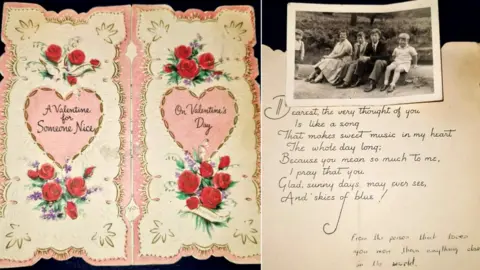 A Valentine
for
Someone Nice
On Valentine's
Day
Dearest, the very thought of you
Is like a song
That makes sweet music in my heart
The whole day long;
Because you mean so much to me,
I pray that you
Glad, sunny days, may ever see,
And skies of blue!
From the person that loves
you more than anything else
in the world.